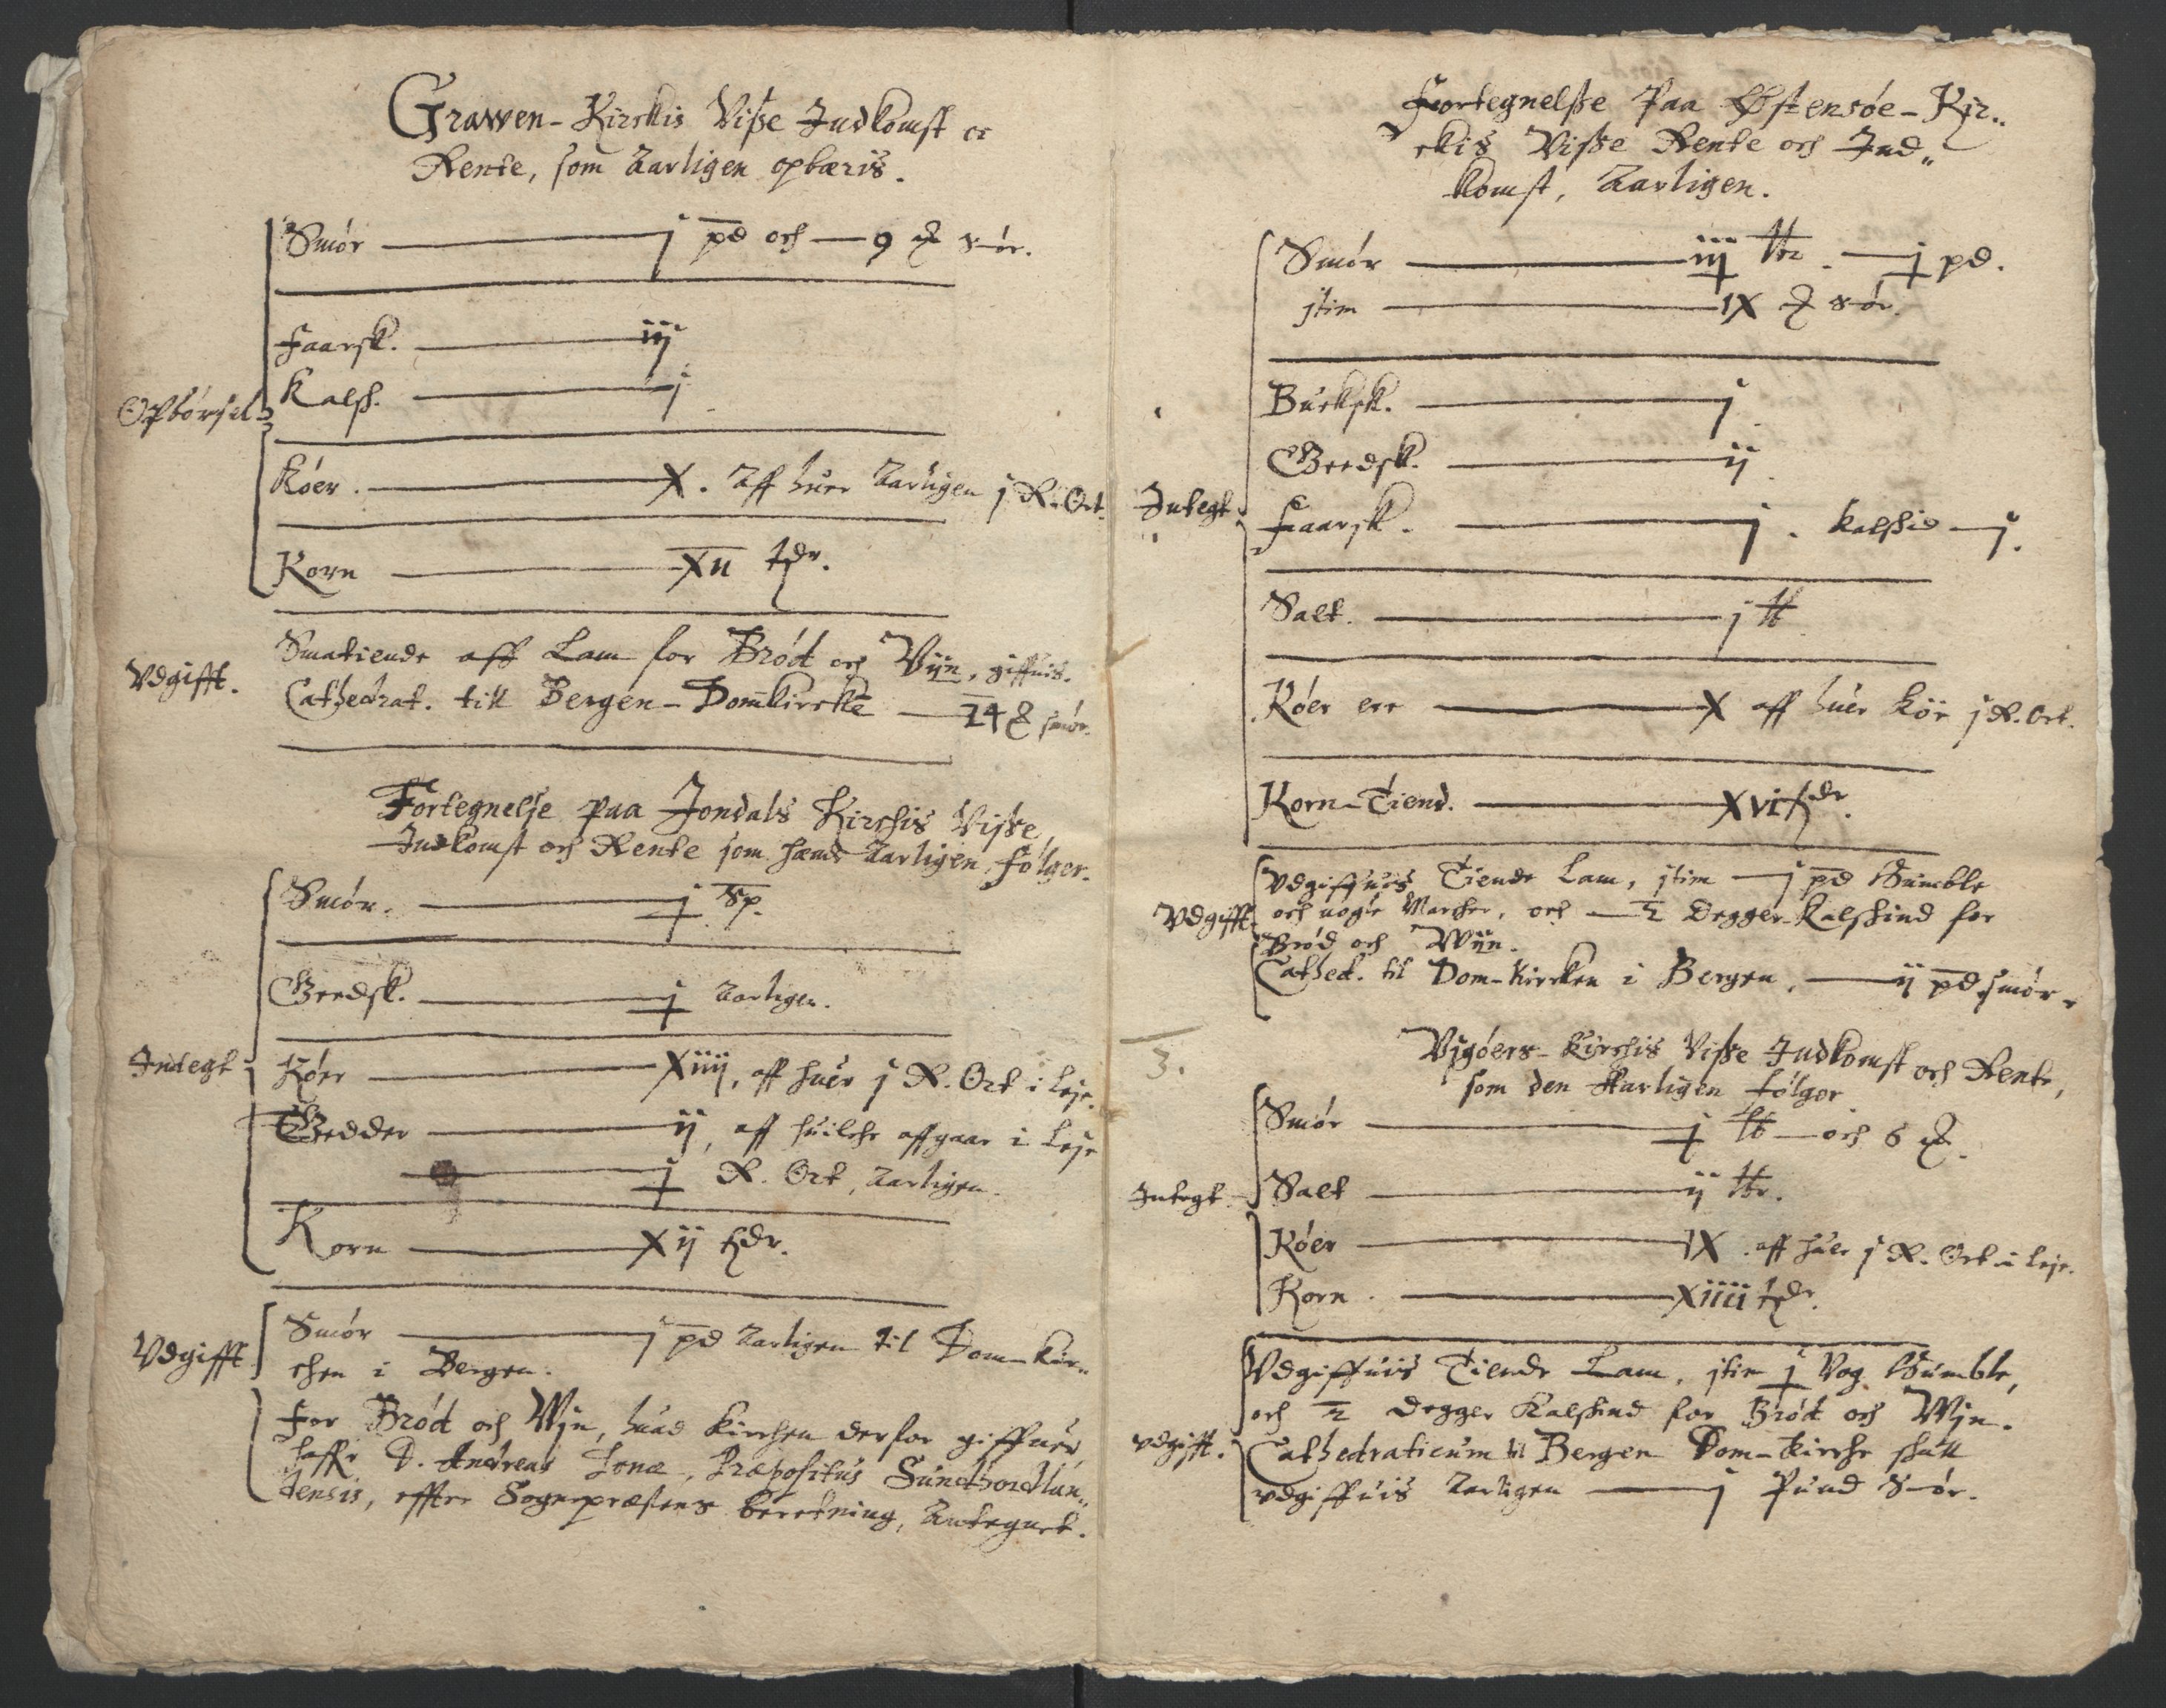 Grawen-Kirckis Visse Indkomst oc
Rente, som Aarligen opbæris.
Smør — j pd och — 9 smør.
Faarsk. — iij
Kalsk. — j
Opbørsel
Køer. — X. Aff huer Aarligen j R. Ort.
Korn — XII tdr.
Smatiende aff Lam for Brød och Vijn, giffuis.
Vdgifft.
Cathedrat. till Bergen-Domkircke — 24 smør.
Fortegnelse paa Jondals Kirchis Visse
Indkomst och Rente som hæms Aarligen følger.
Smør. — j Sp.
Geedsk. — j Aarligen.
Indtegt
Køer — Xiiij, aff huer j R. Ort i leje.
Gedder — ij, aff huilche affgaar i leje
— j R. Ort, Aarligen.
Korn — X ij tdr.
Vdgifft
Smør — j pd Aarligen til Dom-kir-
chen i Bergen.
For Brød och Wijn, huad Kirchen derfor giffuer
haffr D. Andreas Jonæ, Præpositus Sundhordlan-
densis, effter Sognepræstens beretning, Antegnet.
Fortegnelsse Paa Østensøe-Kir-
ckis Visse Rente och Ind-
komst, Aarligen.
Smør — iij — j pd.
jtim — IX smør.
Bucksk. — j
Geedsk. — ij
Integt
Faarsk. — j. Kalskid — j.
Salt. — j
Køer ere — X aff huer Kör j R. Ort.
Korn-Tiend. — Xvi tdr.
Vdgiffuis Tiende Lam, jtim — j pd Bumble
Vdgifft
och nogle Marcher, och — ½ Degger-Kalskind for
Brød och Wijn.
Cathed. til Dom-Kircken i Bergen, — ij pd smør
3.
Vigøers-Kirchis Visse Indkomst och Rente,
som den Aarligen følger
Smør — j — och 6
Integt
Salt — ij
Køer — IX. aff huer j R. Ort i leje.
Korn. — xiiij tdr.
Vdgiffuis Tiende Lam, jtim j Vog Bumble,
och ½ Degger Kalskind for Brød och Wijn.
vdgifft.
Cathedraticum til Bergen Dom-Kirche skull
vdgiffuis Aarligen — j Pund Smør.